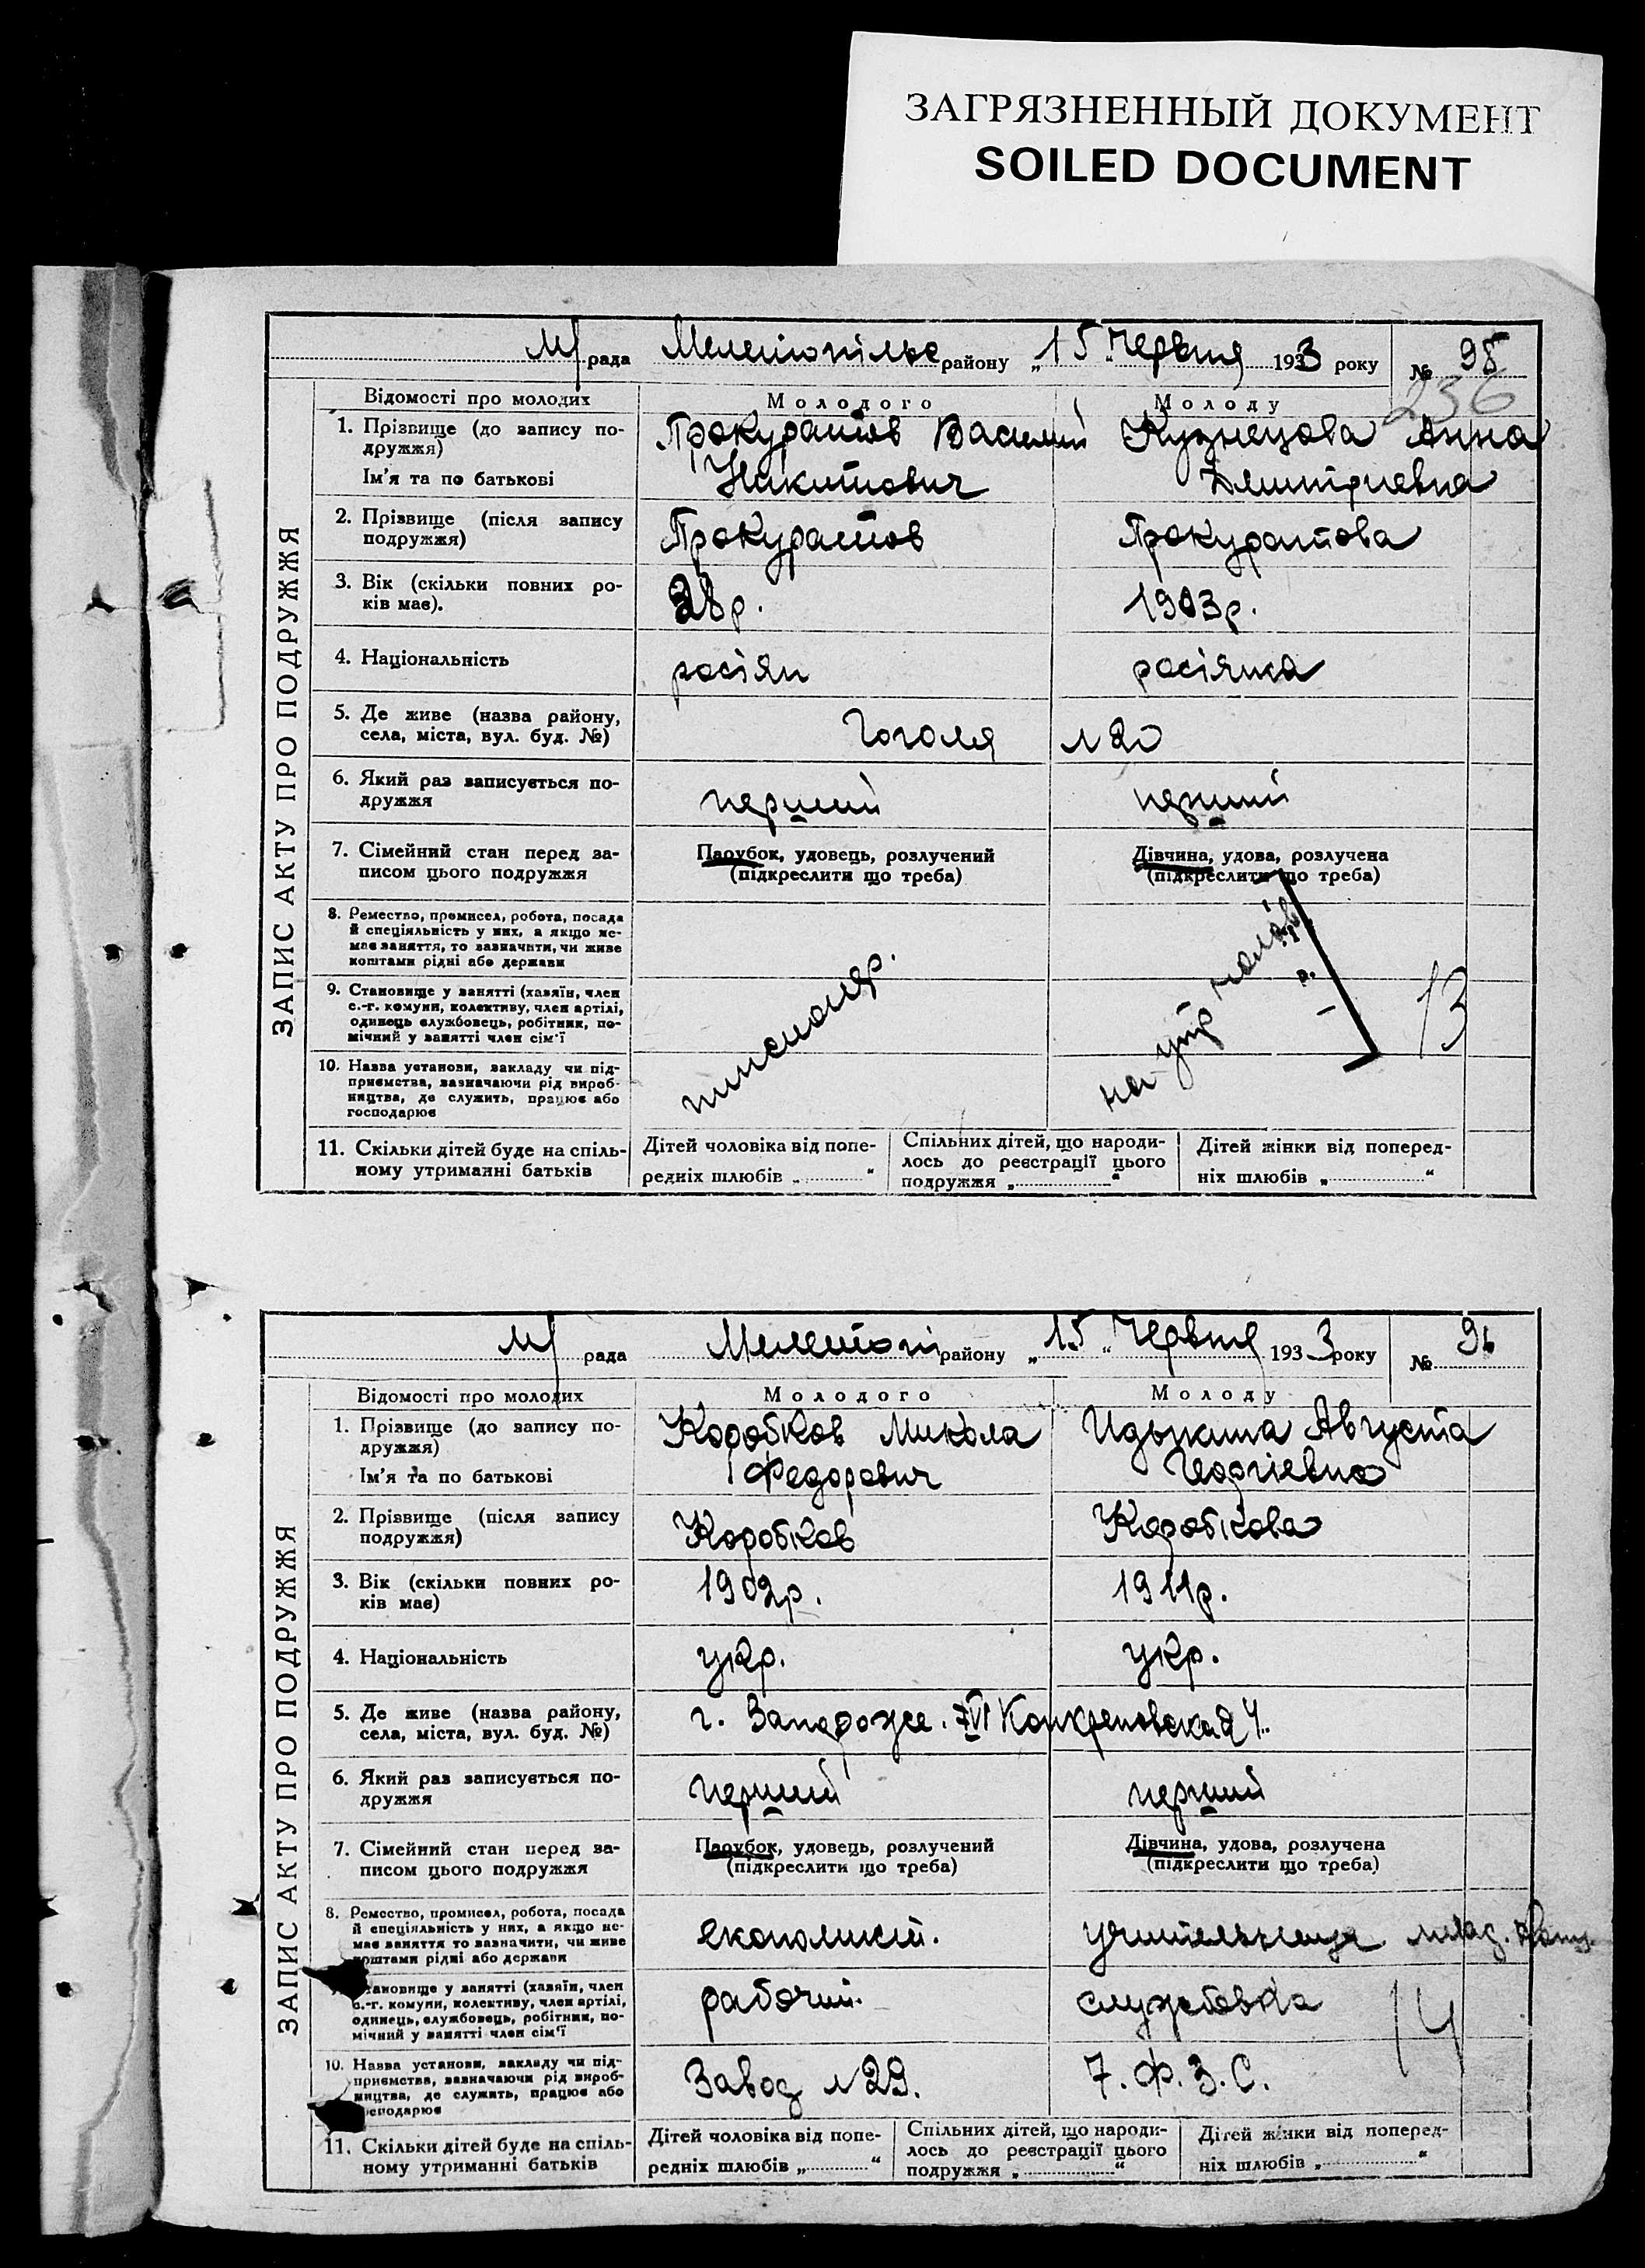 ЗАГРЯЗНЕННЫЙ ДОКУМЕНТ
SOILED DOCUMENT
М/рада Мелітопільс району „15" Червня 1933 року № 95
236
ЗАПИС АКТУ ПРО ПОДРУЖЖЯ
Відомості про молодих Молодого Молоду
1. Прізвище (до запису по-
дружжя)
Ім'я та по батькові
Прокуратов Василий
Никитович
Кузнецова Анна
Дмитриевна
2. Прізвище (після запису
подружжя)
Прокуратов
Прокуратова
3. Вік (скільки повних ро-
ків має).
28р.
1903р.
4. Національність
росіян
росіянка
5. Де живе (назва району,
села, міста, вул. буд. №)
Гоголя №20
6. Який раз записується по-
дружжя
перший
перший
7. Сімейний стан перед за-
писом цього подружжя
Парубок, удовець, розлучений
(підкреслити що треба)
Дівчина, удова, розлучена
(підкреслити що треба)
8. Ремество, промисел, робота, посада
й спеціяльність у них, а якщо не-
має заняття, то зазначити, чи живе
коштами рідні або держави
9. Становище у занятті (хазяїн, член
с.-г. комуни, колективу, член артілі,
одинець службовець, робітник, по-
мічний у занятті член сім'ї
10. Назва установи, закладу чи під-
приємства, зазначаючи рід вироб-
ництва, де служить, працює або
господарює
писмоляр.
на утр
13
11. Скільки дітей буде на спіль-
ному утриманні батьків
Дітей чоловіка від попе-
редніх шлюбів „ “
Спільних дітей, що народи-
лось до реєстрації цього
подружжя „ “
Дітей жінки від поперед-
ніх шлюбів „ “
М/рада Мелітопі району „15" Червня 1933 року № 96
ЗАПИС АКТУ ПРО ПОДРУЖЖЯ
Відомості про молодих Молодого Молоду
1. Прізвище (до запису по-
дружжя)
Ім'я та по батькові
Коробков Микола
Федорович
Августа
Георгіевна
2. Прізвище (після запису
подружжя)
Коробков
Коробкова
3. Вік (скільки повних ро-
ків має)
1902р.
1911р.
4. Національність
укр.
укр.
5. Де живе (назва району,
села, міста, вул. буд. №)
г. Запорожье.
6. Який раз записується по-
дружжя
перший
перший
7. Сімейний стан перед за-
писом цього подружжя
Парубок, удовець, розлучений
(підкреслити що треба)
Дівчина, удова, розлучена
(підкреслити що треба)
8. Ремество, промисел, робота, посада
й спеціяльність у них, а якщо не-
має заняття то зазначити, чи живе
коштами рідні або держави
економист.
учительница млад.
становище у занятті (хазяїн, член
с.-г. комуни, колективу, член артілі,
одинець, службовець, робітник, по-
мічний у занятті член сім'ї
рабочий.
службовка
14
10. Назва установи, закладу чи під-
приємства, зазначаючи рід вироб-
ництва, де служить, працює або
господарює
Завод №29.
7. Ф. З. С.
11. Скільки дітей буде на спіль-
ному утриманні батьків
Дітей чоловіка від попе-
редніх шлюбів „ “
Спільних дітей, що народи-
лось до реєстрації цього
подружжя „ “
Дітей жінки від поперед-
ніх шлюбів „ “